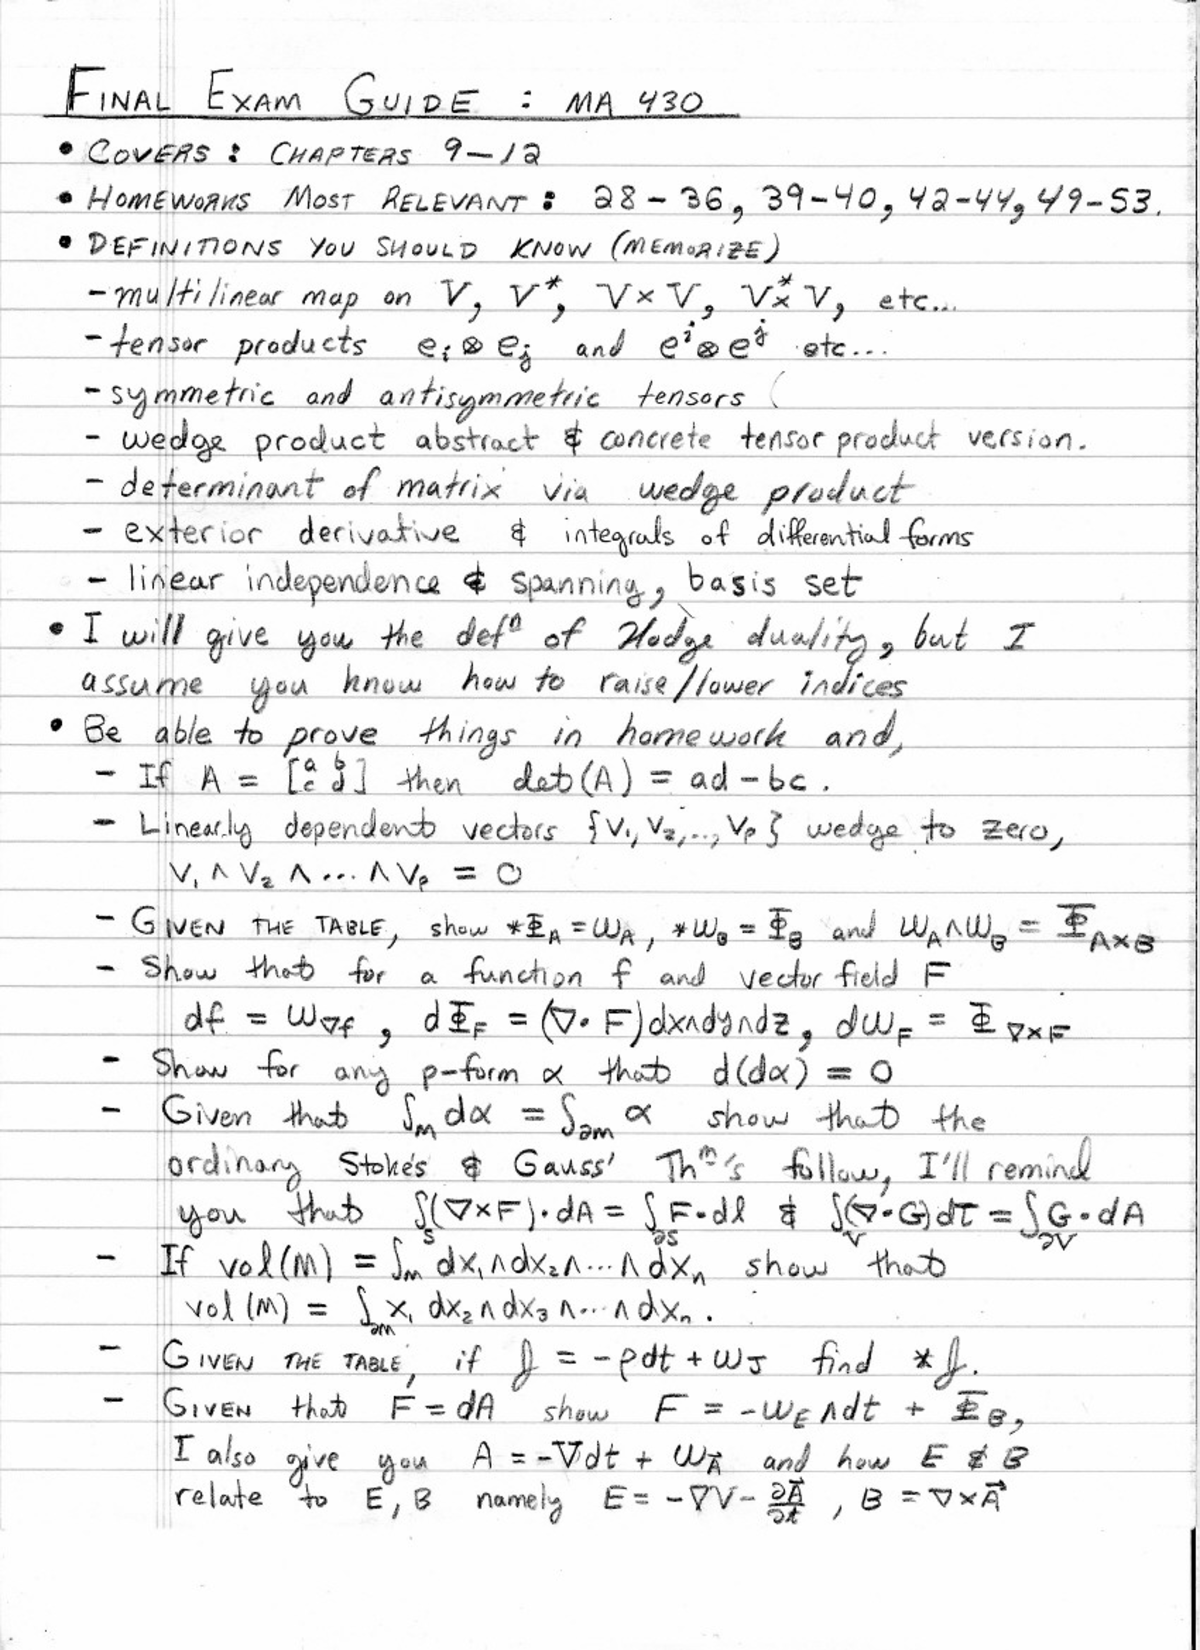 FINAL EXAM GUIDE : MA 430
• COVERS : CHAPTERS 9–12
• HOMEWORKS MOST RELEVANT : 28–36, 39–40, 42–44, 49–53.
• DEFINITIONS YOU SHOULD KNOW (MEMORIZE)
– multilinear map on V, V*, V×V, V*×V, etc...
– tensor products eᵢ⊗eⱼ and eⁱ⊗eʲ etc...
– symmetric and antisymmetric tensors (
– wedge product abstract & concrete tensor product version.
– determinant of matrix via wedge product
– exterior derivative & integrals of differential forms
– linear independence & spanning, basis set
• I will give you the defⁿ of Hodge duality, but I
assume you know how to raise/lower indices
• Be able to prove things in homework and,
– If A = [a b c d] then det(A) = ad – bc.
– Linearly dependent vectors {V₁, V₂, .., Vₚ} wedge to zero,
V₁ ∧ V₂ ∧ ... ∧ Vₚ = 0
– GIVEN THE TABLE, show *Φ_A = ω_A, *ω_B = Φ_B and ω_A∧ω_B = Φ_A×B
– Show that for a function f and vector field F
df = ω_∇f , dΦ_F = (∇•F)dx∧dy∧dz, dω_F = Φ_∇×F
– Show for any p–form α that d(dα) = 0
– Given that ∫_M dα = ∫_∂M α show that the
ordinary Stoke's & Gauss' Thᵐ's follow, I'll remind
you that ∫_S(∇×F)•dA = ∫_∂S F•dl & ∫_V(∇•G)dτ = ∫_∂V G•dA
– If vol(M) = ∫_M dx₁∧dx₂∧...∧dxₙ show that
vol(M) = ∫_∂M x₁ dx₂∧dx₃∧...∧dxₙ.
– GIVEN THE TABLE, if J = –ρdt + ω_J find *J.
– GIVEN that F = dA show F = –ω_E∧dt + Φ_B,
I also give you A = –Vdt + ω_A⃗ and how E & B
relate to E, B namely E = –∇V – ∂A⃗/∂t , B = ∇×A⃗